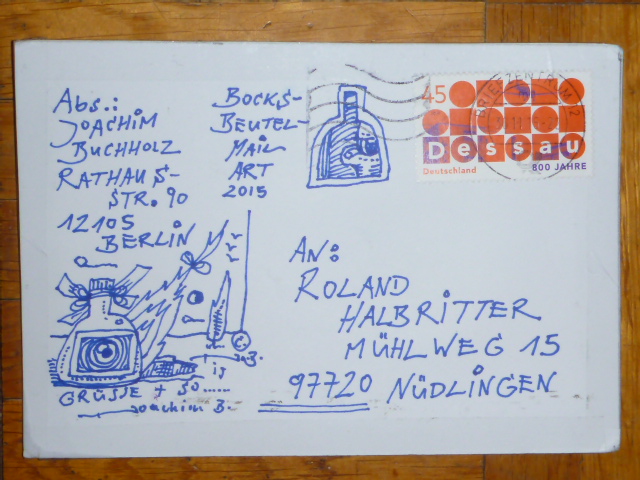 Abs.:
JOACHIM
BUCHHOLZ
RATHAUS-
STR. 90
12105
BERLIN
BOCKS-
BEUTEL-
MAIL
ART
2015
45
Dessau
Deutschland
800 JAHRE
BRIEFZENTRUM
AN:
ROLAND
HALBRITTER
MÜHLWEG 15
97720 NÜDLINGEN
GRÜSSE + SO......
Joachim B.